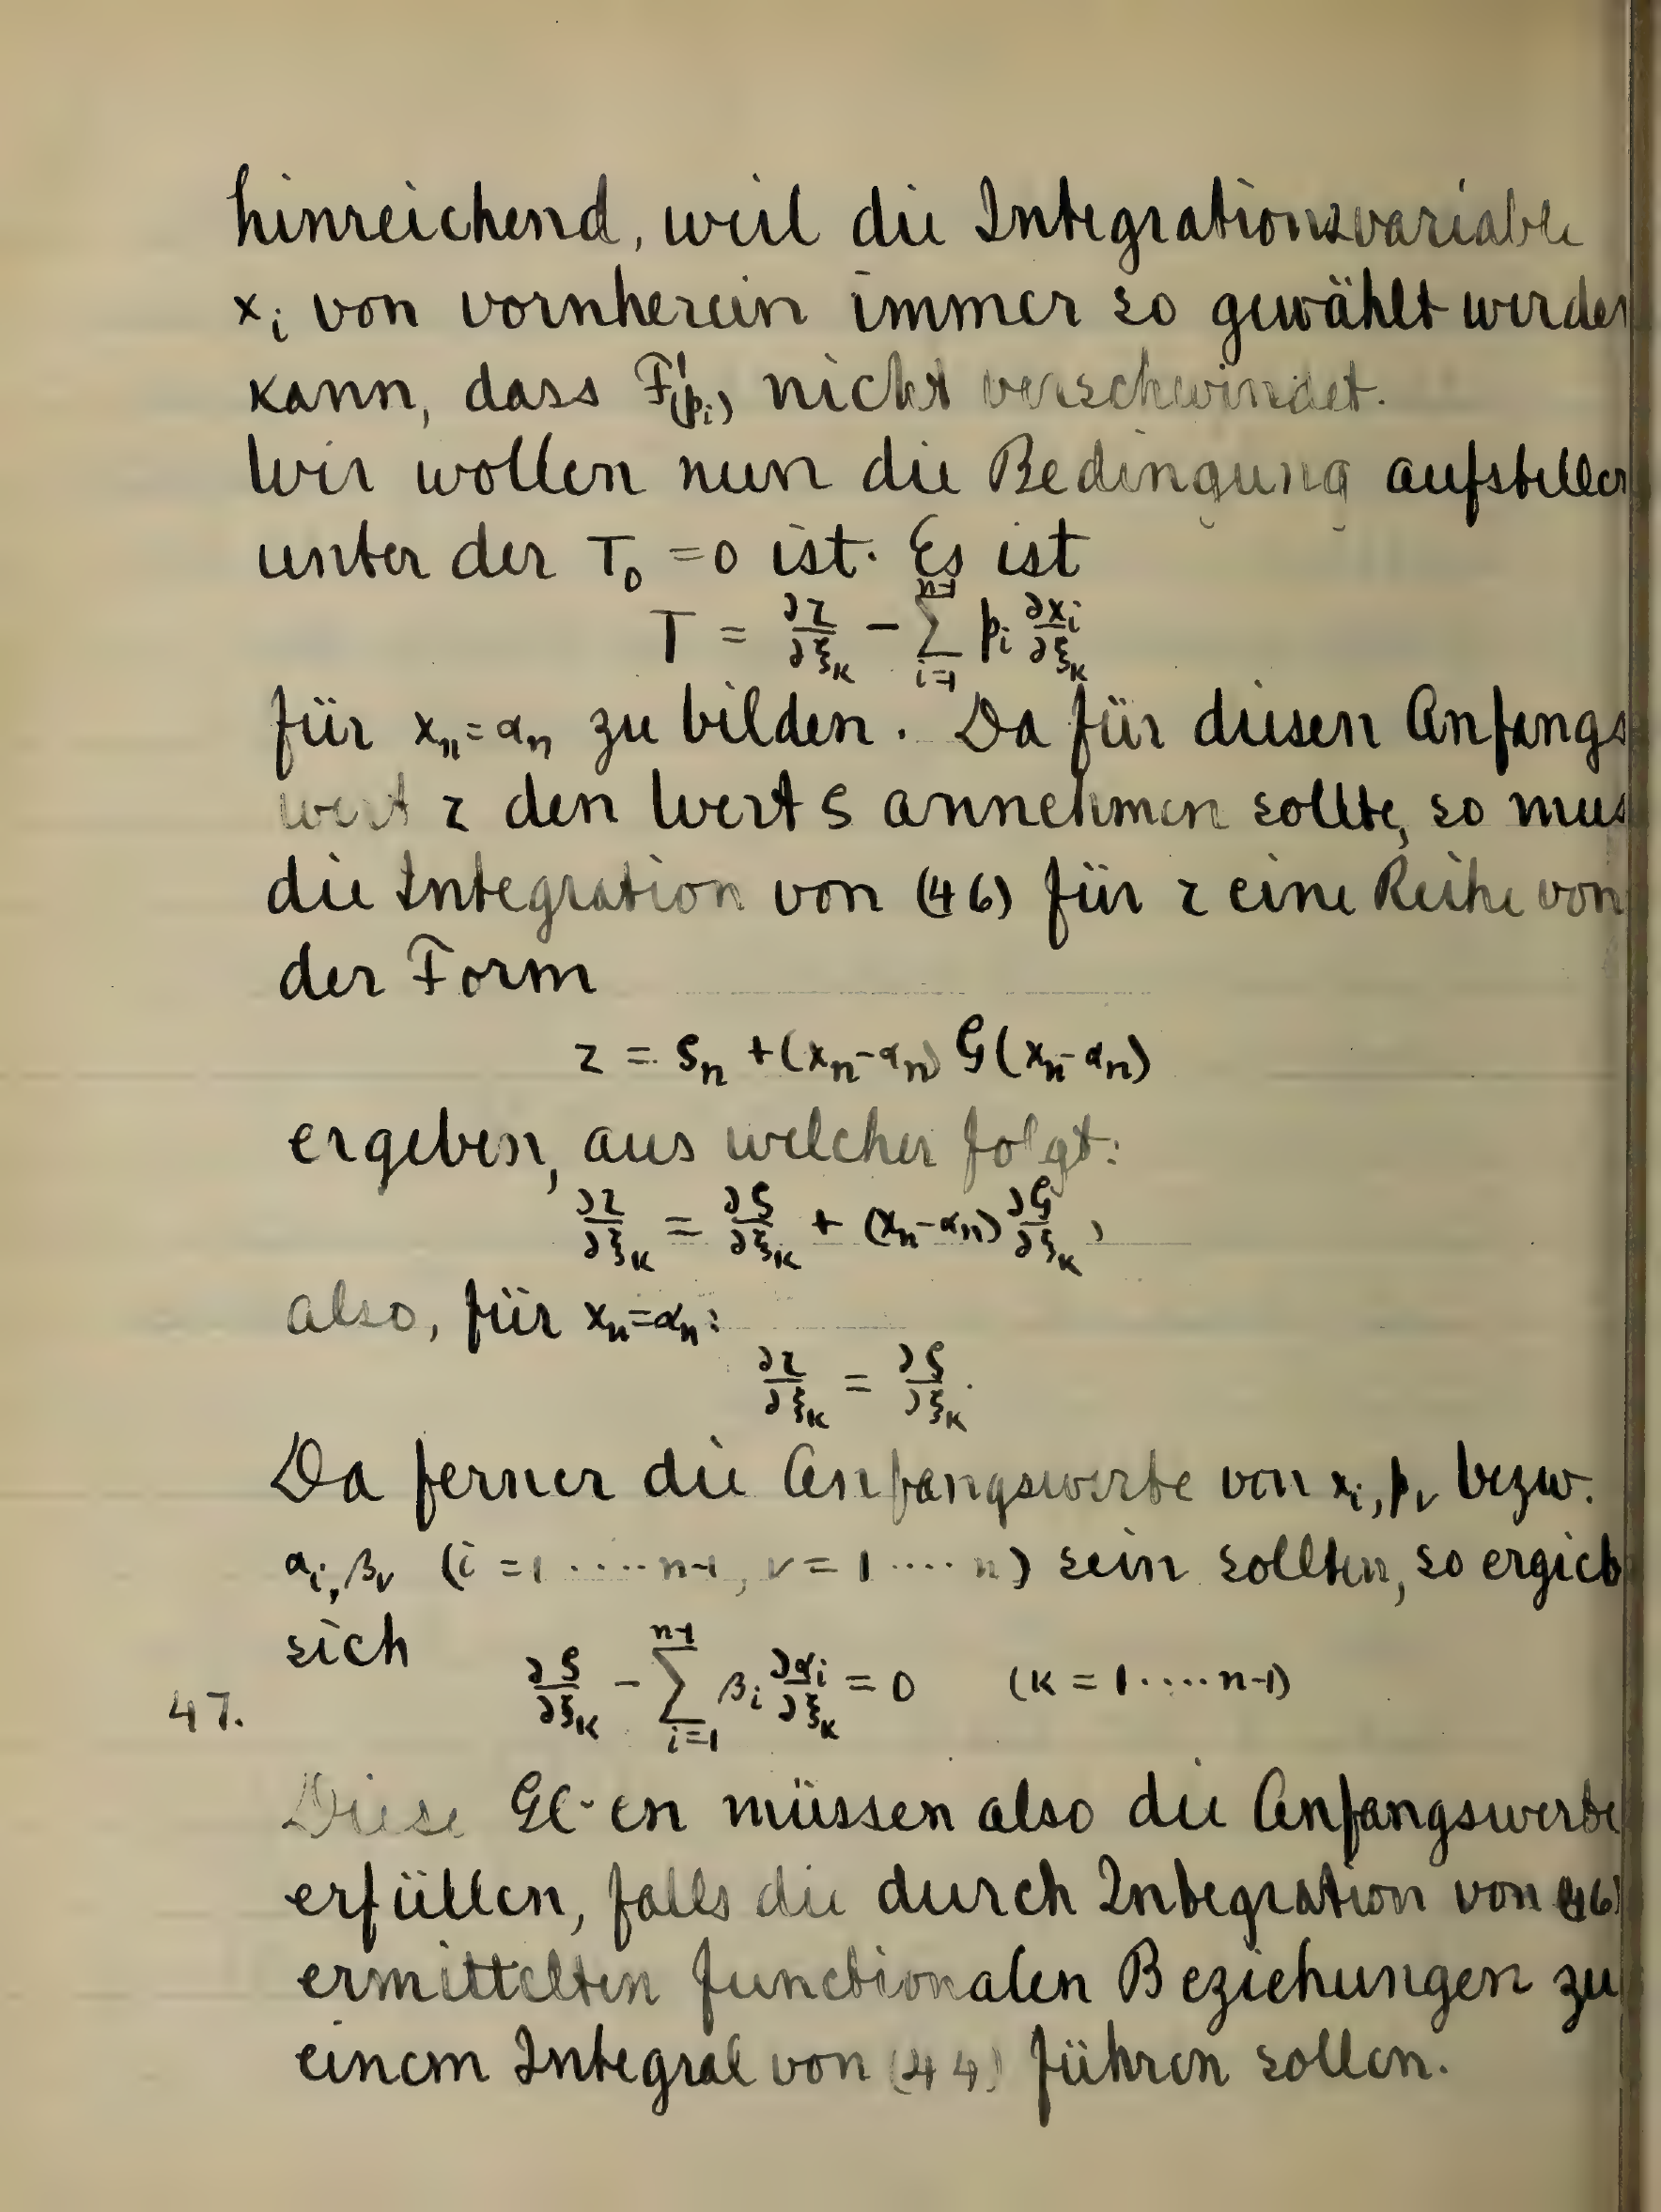 hinreichend, weil die Integrationsvariable
x_i von vornherein immer so gewählt werden
kann, dass F'(p_i) nicht verschwindet.
Wir wollen nun die Bedingung aufstellen
unter der T_0 = 0 ist. Es ist
T = ∂z/∂ξ_k − ∑_{i=1}^{n-1} p_i ∂x_i/∂ξ_k
für x_n = α_n zu bilden. Da für diesen Anfangs
wert z den Wert ζ annehmen sollte, so mus
die Integration von (46) für z eine Reihe von
der Form
z = ζ_n + (x_n − α_n) G(x_n − α_n)
ergeben, aus welcher folgt:
∂z/∂ξ_k = ∂ζ/∂ξ_k + (x_n − α_n) ∂G/∂ξ_k,
also, für x_n = α_n:
∂z/∂ξ_k = ∂ζ/∂ξ_k.
Da ferner die Anfangswerte von x_i, p_ν bezw.
α_i, β_ν (i = 1 ····· n-1, ν = 1 ···· n) sein sollten, so ergieb
sich
47. ∂ζ/∂ξ_k − ∑_{i=1}^{n-1} β_i ∂α_i/∂ξ_k = 0 (k = 1 ···· n-1)
Diese Gl-en müssen also die Anfangswerte
erfüllen, falls die durch Integration von (46)
ermittelten functionalen Beziehungen zu
einem Integral von (44) führen sollen.